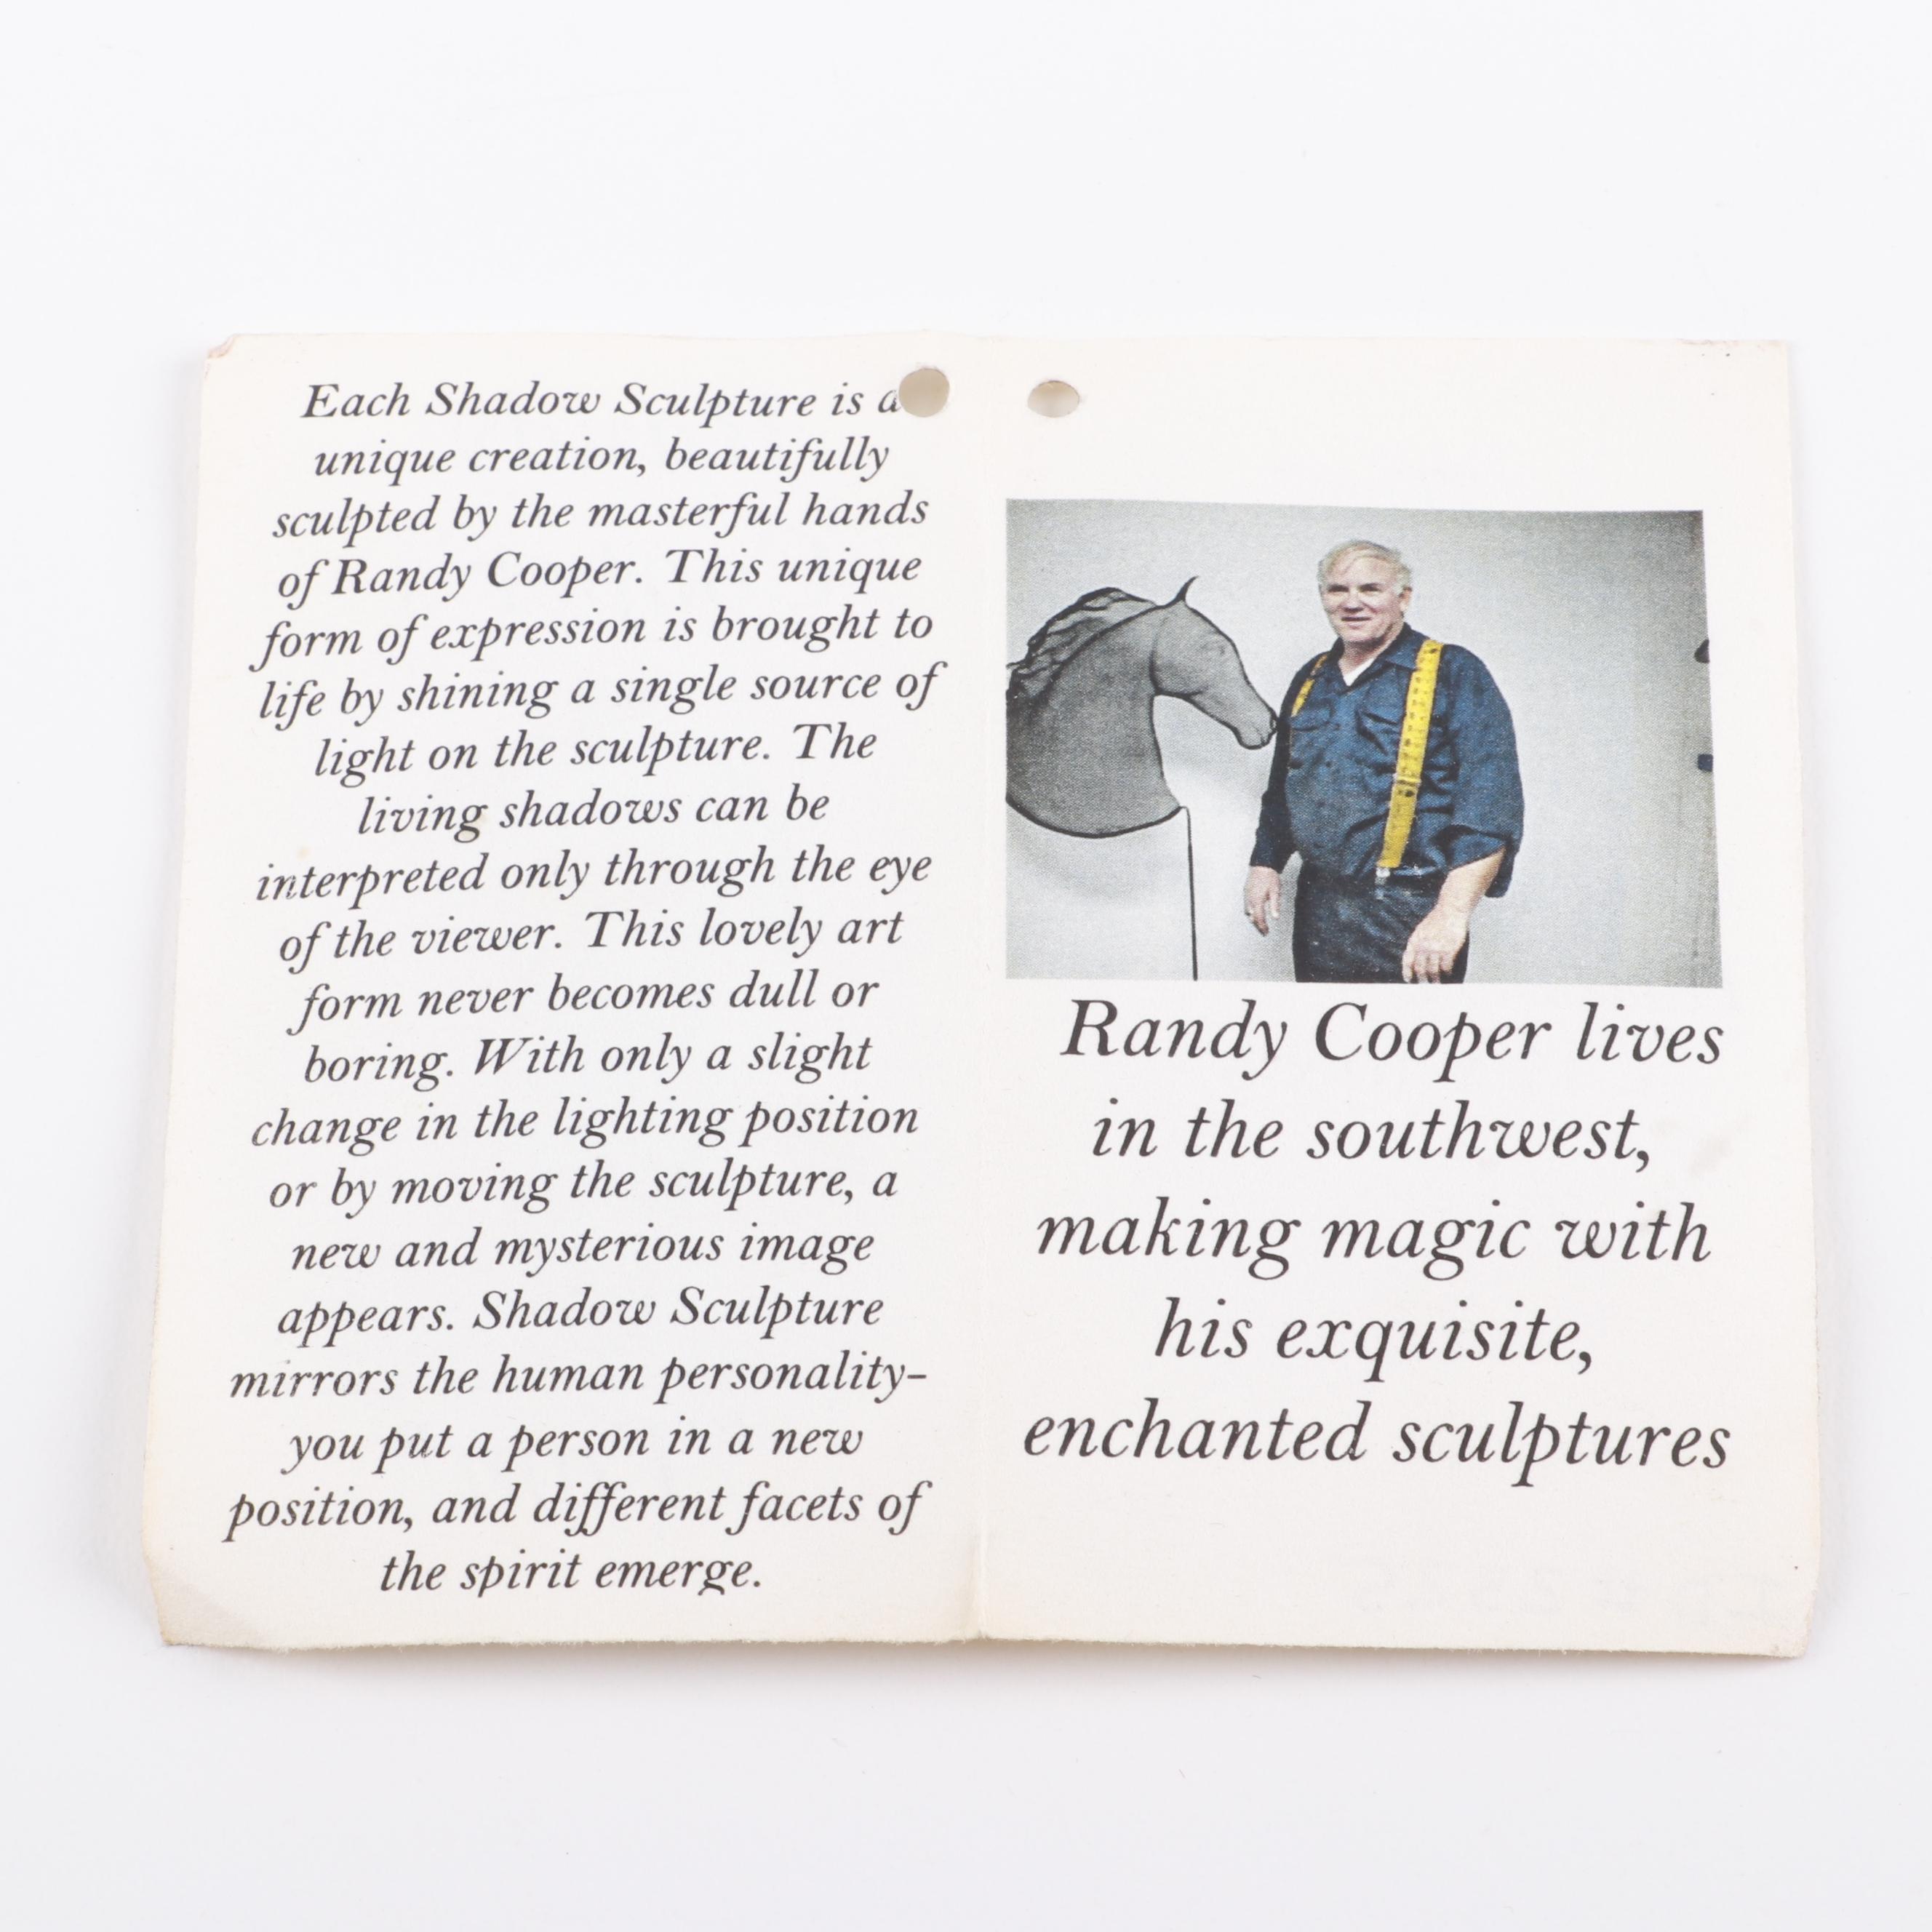 Each Shadow Sculpture is a
unique creation, beautifully
sculpted by the masterful hands
of Randy Cooper. This unique
form of expression is brought to
life by shining a single source of
light on the sculpture. The
living shadows can be
interpreted only through the eye
of the viewer. This lovely art
form never becomes dull or
boring. With only a slight
change in the lighting position
or by moving the sculpture, a
new and mysterious image
appears. Shadow Sculpture
mirrors the human personality-
you put a person in a new
position, and different facets of
the spirit emerge.
Randy Cooper lives
in the southwest,
making magic with
his exquisite,
enchanted sculptures